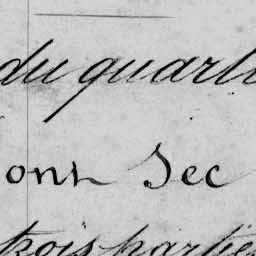 du quarti
ont Sec
trois partie